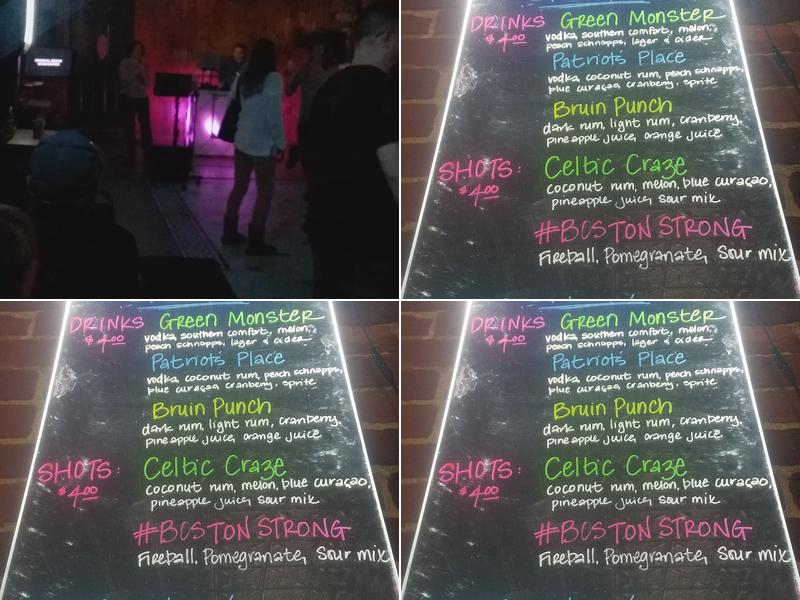 DRINKS Green Monster
$4.00 vodka, southern comfort, melon,
peach schnapps, lager & cider
Patriots Place
vodka, coconut rum, peach schnapps,
blue curaçao, cranberry, sprite
Bruin Punch
dark rum, light rum, cranberry,
pineapple juice, orange juice
SHOTS: Celtic Craze
$4.00 coconut rum, melon, blue curaçao,
pineapple juice, sour mix
#BOSTON STRONG
Fireball, Pomegranate, Sour mix
DRINKS Green Monster
$4.00 vodka, southern comfort, melon,
peach schnapps, lager & cider
Patriots Place
vodka, coconut rum, peach schnapps,
blue curaçao, cranberry, sprite
Bruin Punch
dark rum, light rum, cranberry,
pineapple juice, orange juice
SHOTS: Celtic Craze
$4.00 coconut rum, melon, blue curaçao,
pineapple juice, sour mix
#BOSTON STRONG
Fireball, Pomegranate, Sour mix
DRINKS Green Monster
$4.00 vodka, southern comfort, melon,
peach schnapps, lager & cider
Patriots Place
vodka, coconut rum, peach schnapps,
blue curaçao, cranberry, sprite
Bruin Punch
dark rum, light rum, cranberry,
pineapple juice, orange juice
SHOTS: Celtic Craze
$4.00 coconut rum, melon, blue curaçao,
pineapple juice, sour mix
#BOSTON STRONG
Fireball, Pomegranate, Sour mix